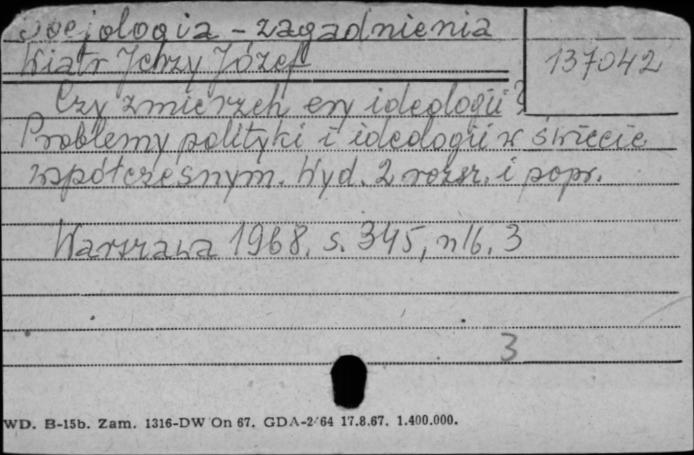 Socjologia - zagadnienia
Wiatr Jerzy Józef
137042
Czy zmierzch ery ideologii?
Problemy polityki i ideologii w świecie
współczesnym. Wyd. 2 rozsz. i popr.
Warszawa 1968, s. 345, nlb. 3
3
WD. B-15b. Zam. 1316-DW On 67. GDA-2/64 17.8.67. 1.400.000.